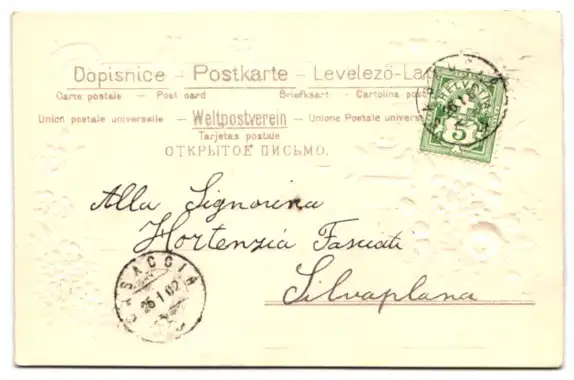 Dopisnice – Postkarte – Levelező-La
Carte postale – Post card Briefkaart – Cartolina post
Union postale universelle – Weltpostverein – Unione Postale univers
Tarjetas postale
ОТКРЫТОЕ ПИСЬМО.
HELVETIA
5
Alla Signorina
Hortenzia Fasciati
Silvaplana
CASACCIA
26 I 02